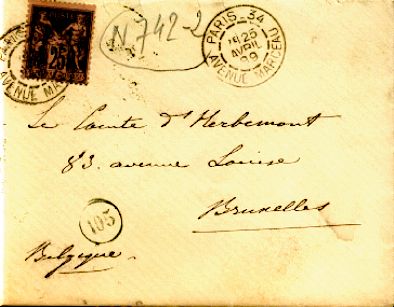 N 742-2
PARIS
25
AVENUE MAR
PARIS - 34
25
AVRIL
89
AVENUE MARCEAU
Le Comte d'Herbemont
83. avenue Louise
Bruxelles
105
Belgique